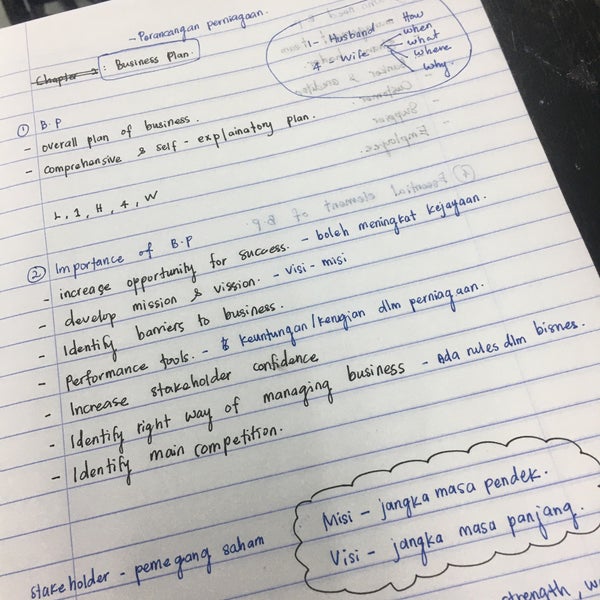 - Perancangan perniagaan.
Chapter 2 : Business Plan.
1 - Husband
4 - Wife
How
when
what
where
why.
① B.P
- overall plan of business.
- comprehensive & self - explainatory plan.
L, 1, H, 4, W
② Importance of B.P
- increase opportunity for success. - boleh meningkat kejayaan.
- develop mission & vission. - visi - misi
- Identify barriers to business.
- Performance tools. - keuntungan/kerugian dlm perniagaan.
- Increase stakeholder confidence
- Identify right way of managing business - Ada rules dlm bisnes.
- Identify main competition.
Misi - jangka masa pendek.
Visi - jangka masa panjang.
stakeholder - pemegang saham
strength,